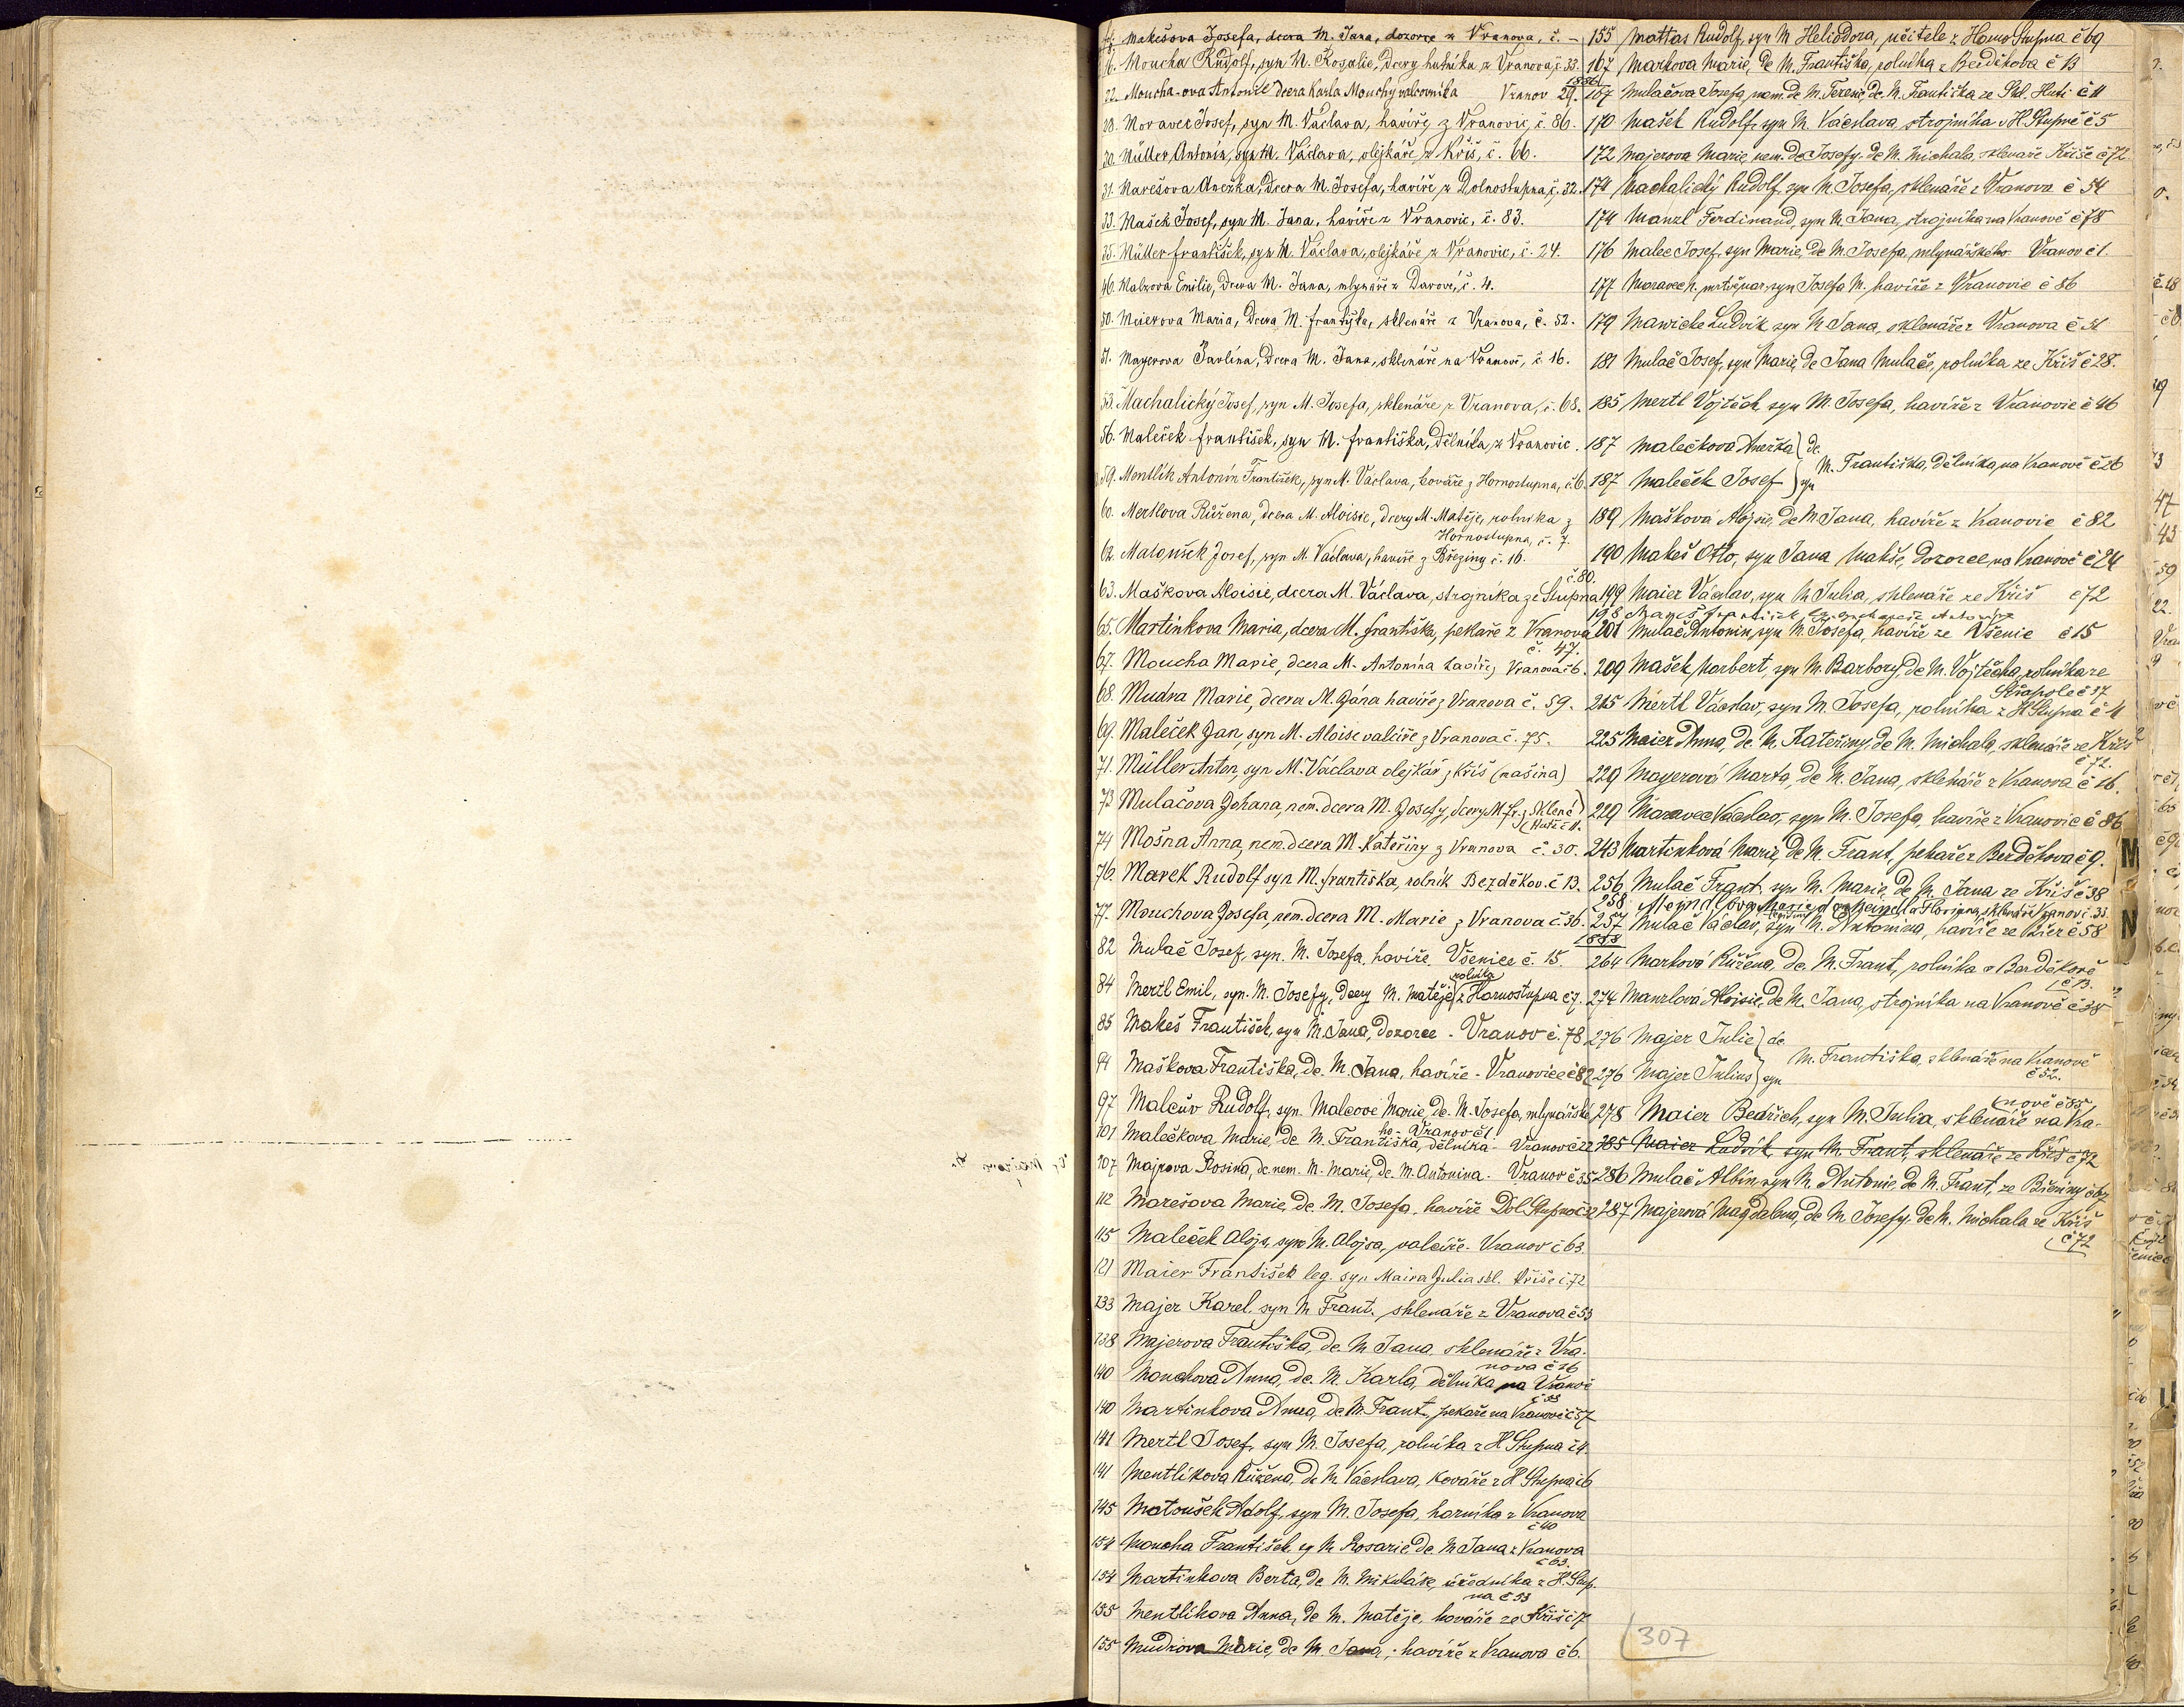 Makešova Josefa, dcera M. Jana, dozorce z Vranova, č. –
16. Moucha Rudolf, syn M. Rosalie, dcery hutníka z Vranova, č. 33.
22. Moucha-ova Antonie dcera Karla Mouchy valcovníka Vranov 29.
28. Moravec Josef, syn M. Václava, havíře z Vranovic, č. 86.
30. Müller Antonín, syn M. Václava, olejkáře z Kříš, č. 66.
31. Marešova Anežka, dcera M. Josefa, havíře z Dolnostupna, č. 32.
33. Mašek Josef, syn M. Jana, havíře z Vranovic, č. 83.
35. Müller František, syn M. Václava, olejkáře z Vranovic, č. 24.
46. Malzova Emilie, dcera M. Jana, mlynáře z Darové, č. 4.
50. Meierova Maria, dcera M. Františka, sklenáře z Vranova, č. 52.
51. Mayerova Pavlina, dcera M. Jana, sklenáře na Vranově, č. 16.
53. Machalický Josef, syn M. Josefa, sklenáře z Vranova, č. 68.
56. Maleček František, syn M. Františka, dělníka, z Vranovic.
59. Mentlík Antonín František, syn M. Václava, kováře z Hornostupna, č. 6.
60. Mertlova Růžena, dcera M. Aloisie, dcery M. Matěje, rolníka z
Hornostupna, č. 7.
62. Matoušek Josef, syn M. Václava, havíře z Březiny č. 16.
č. 80.
63. Maškova Aloisie, dcera M. Václava, strojníka ze Stupna
65. Martinkova Maria, dcera M. Františka, pekaře z Vranova
č. 47.
67. Moucha Marie, dcera M. Antonína havíře z Vranova č. 6.
68. Mudra Marie, dcera M. Jána havíře z Vranova č. 59.
69. Maleček Jan, syn M. Aloise valcíře z Vranova č. 75.
71. Müller Anton, syn M. Václava olejkář z Kříš (našina)
73 Mulačova Johana, nem. dcera M. Josefy, dcery M. Fr. z Sklené
Hutě č 11.
74 Mošna Anna, nem. dcera M. Kateřiny z Vranova č. 30.
76. Marek Rudolf syn M. Františka, rolník Bezděkov. č 13.
77. Mouchova Josefa, nem. dcera M. Marie z Vranova č. 36.
82 Mulač Josef, syn. M. Josefa, havíře Všenice č. 15.
rolníka
84 Mertl Emil, syn. M. Josefy, dcery M. Matěje z Hornostupna č 7.
85 Makeš František, syn M. Jana, dozorce - Vranov č. 78
94 Maškova Františka, dc. M. Jana, havíře - Vranovice č 82
97 Malcův Rudolf, syn Malcové Marie, dc. M. Josefa, mlynářské-
ho - Vranov č 1
101 Malečkova Marie, dc M. Františka, dělníka - Vranov č 22
107 Majrova Rosina, dc nem. M. Marie, dc. M. Antonina. Vranov č 35
112 Marešova Marie, dc. M. Josefa, havíře Dol. Stupno č 32
115 Maleček Alojs, syn M. Alojsa, valcíře. Vranov č 63.
121 Maier František leg. syn Maira Julia skl. Kříše č. 72
133 Majer Karel, syn M. Frant. sklenáře z Vranova č 53
138 Majerova Františka, dc. M. Jana, sklenáře z Vra-
nova č 16
140 Mouchova Anna, dc. M. Karla, dělníka na Vranově
č 33
140 Martinkova Anna, dc M. Frant., pekaře na Vranově č 57
141 Mertl Josef, syn M. Josefa, rolníka z H. Stupna č 4.
141 Mentlíkova Růžena, dc M. Václava, kováře z H Stupna č 6
145 Matoušek Adolf, syn M. Josefa, horníka z Vranova
č 40
154 Moucha František, sy M. Rosarie dc M. Jana z Vranova
č 63.
154 Martinkova Berta, dc M. Mikuláše, úředníka z H. Stup-
na č 53
155 Mentlíkova Anna, dc M. Matěje, kováře ze Kříš č 7
155 Mudrova Marie, dc M. Jana, havíře z Vranova č 6.
155 Mattas Rudolf, syn M Heliodora, učitele z Horno Stupna č 69
167 Markova Marie, dc M. Františka, rolníka z Bezděkova č 13
1886
167 Mulačova Josefa, nem. dc M. Terezie, dc. M. Františka ze Skl. Huti č 11
170 Mašek Rudolf, syn M. Václava, strojníka v H Stupně č 5
172 Majerova Marie, nem. dc Josefy, dc M. Michala, sklenáře Kříše č 72
174 Machalický Rudolf, syn M. Josefa, sklenáře z Vranova č 54
174 Manzl Ferdinand, syn M. Jana, strojníka na Vranově č 78
176 Malec Josef, syn Marie, dc M. Josefa, mlynářského Vranov č 1.
177 Moravec N. mrtvě nar. syn Josefa M. havíře z Vranovic č 86
179 Mawicke Ludvík syn M. Jana, sklenáře z Vranova č 51
181 Mulač Josef, syn Marie, dc Jana Mulače, rolníka ze Kříš č 28.
185 Mertl Vojtěch, syn M. Josefa, havíře z Vranovic č 46
187 Malečkova Anežka } dc
M. Františka, dělníka, na Vranově č 26
187 Maleček Josef } syn
189 Mašková Alojsie, dc M. Jana, havíře z Vranovic č 82
190 Makeš Otto, syn Jana Makše, dozorce, na Vranově č 24
199 Maier Václav, syn M. Julia, sklenáře ze Kříš č 72
198 Mareš František
201 Mulač Antonin, syn M. Josefa, havíře ze Všenic č 15
209 Mašek Norbert, syn M. Barbory, dc M. Vojtěcha, rolníka ze
Střapole č 37
215 Mertl Václav, syn M. Josefa, rolníka z H Stupna č 4
225 Maier Anna, dc M. Kateřiny dc M. Michala, sklenáře ze Kříš
č 72.
229 Mayerová Marta, dc M. Jana, sklenáře z Vranova č 16.
229 Moravec Václav, syn M. Josefa, havíře z Vranovic č 86
243 Martinková Marie, dc M. Frant., pekaře z Bezděkova č 9.
256 Mulač Frant. syn M. Marie, dc M. Jana ze Kříš č 38
258 Meindlova Marie dc Meindla Floriana, sklenáře Vranov č. 33
257 Mulač Václav, syn M. Antonína, havíře ze Břez č 58
1888
264 Marková Růžena, dc M. Frant., rolníka v Bezděkově
č 13.
274 Manzlová Aloisie, dc M. Jana, strojníka na Vranově č 38
276 Majer Julie } dc
M. Františka, sklenáře na Vranově
č 52.
276 Majer Julius } syn
nově č 85
278 Maier Bedřich, syn M. Julia, sklenáře na Vra-
285 Maier Ludvík, syn M. Frant., sklenáře ze Kříš č 72
286 Mulač Albín, syn M. Antonie, dc M. Frant. ze Březiny č 67
287 Majerová Magdalena, dc M Josefy, dc M. Michala ze Kříš
č 72
307
M
N